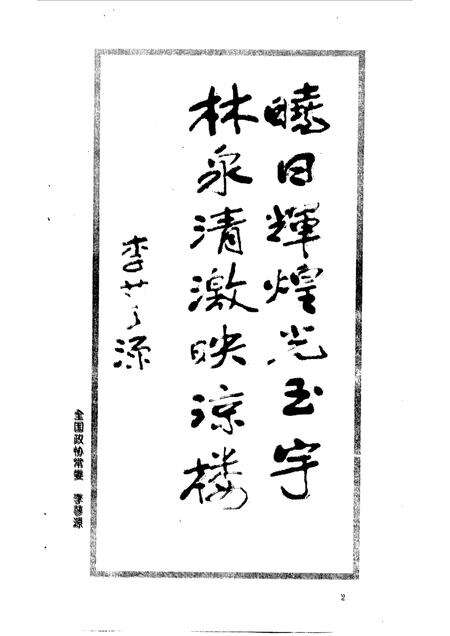 曉日輝煌光玉宇
林泉清激映凉楼
李蓼源
全国政协常委 李蓼源
2